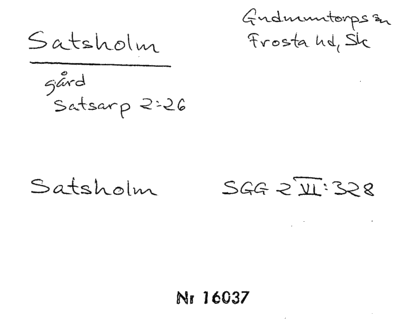 Satsholm
Gudmuntorps sn
Frosta hd, Sk
gård
Satsarp 2:26
Satsholm SGG 2 VI:328
Nr 16037